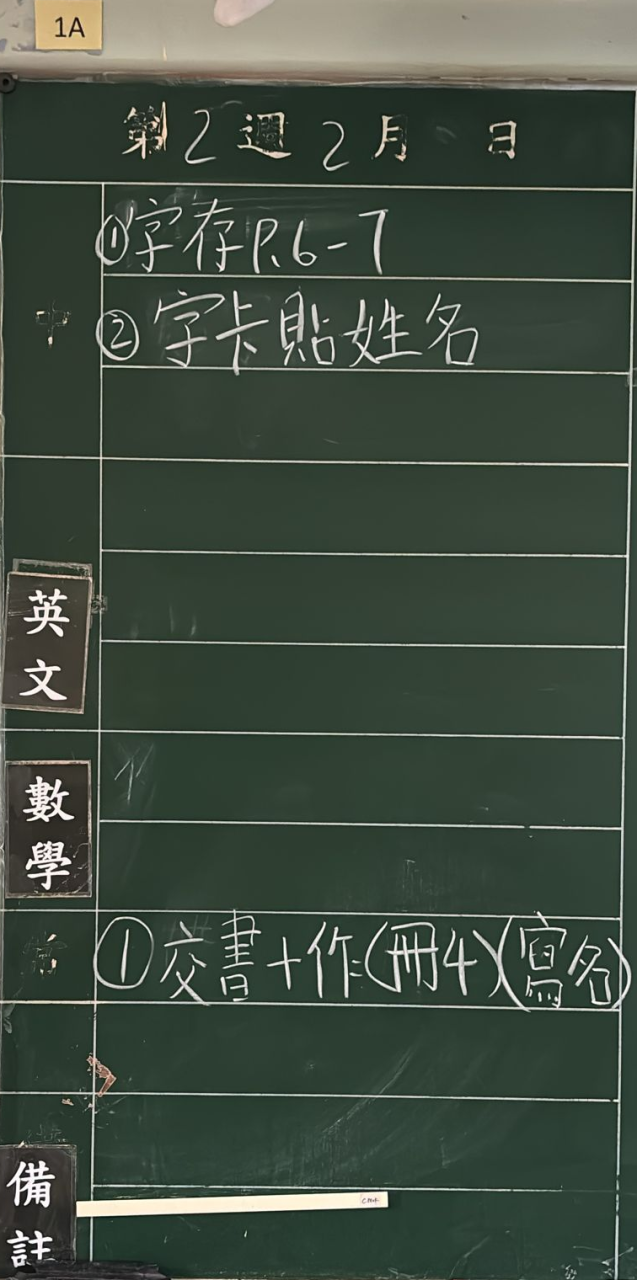 1A
第2週2月 日
中
①字存P.6-7
②字卡貼姓名
英文
數學
常
①交書+作:(冊4)(寫名)
備註
cmk